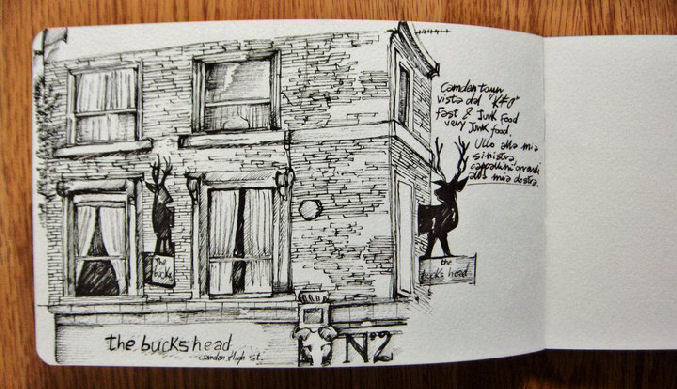 Camden town
vista dal "K40"
fast & Junk food
very Junk food.
Ullo alla mia
sinistra,
alla mia destra.
the
bucks
the
buck's head
the buckshead
camden High st.
Nº2